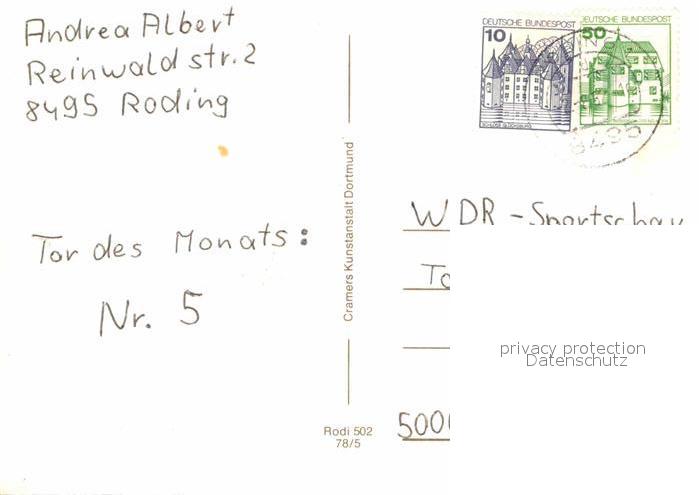 Andrea Albert
Reinwaldstr. 2
8495 Roding
Tor des Monats:
Nr. 5
Cramers Kunstanstalt Dortmund
Rodi 502
78/5
DEUTSCHE BUNDESPOST
10
SCHLOSS GLÜCKSBURG
DEUTSCHE BUNDESPOST
50
8495
WDR - Sportschau
To
500
privacy protection
Datenschutz